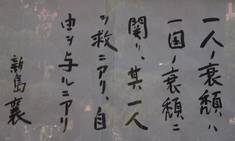 一人衰頽ハ
一国ノ衰頽ニ
関ハル其一人
ツ救ニアリ自
由ツ与ルニアリ
新島襄